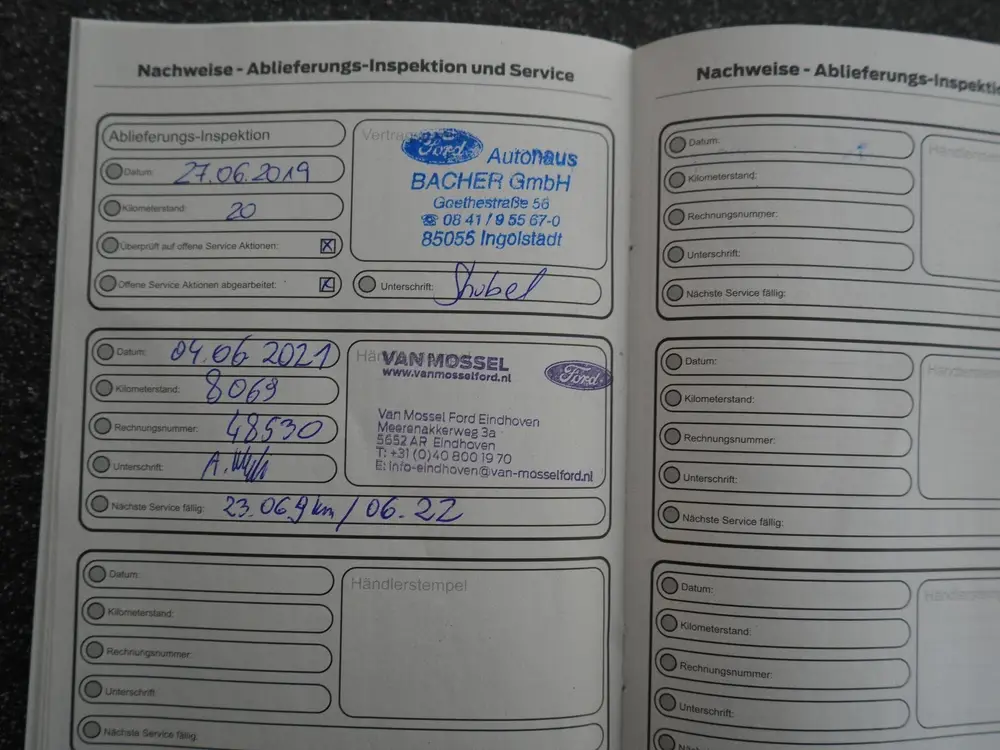 Nachweise - Ablieferungs-Inspektion und Service
Ablieferungs-Inspektion
Datum: 27.06.2019
Kilometerstand: 20
Überprüft auf offene Service Aktionen: X
Offene Service Aktionen abgearbeitet: X
Ford Autohaus
BACHER GmbH
Goethestraße 56
☎ 08 41 / 9 55 67-0
85055 Ingolstadt
Unterschrift:
Datum: 04.06.2021
Kilometerstand: 8069
Rechnungsnummer: 48530
Unterschrift:
Nächste Service fällig: 23.069 km / 06.22
VAN MOSSEL
www.vanmosselford.nl
Ford
Van Mossel Ford Eindhoven
Meerenakkerweg 3a
5652 AR Eindhoven
T: +31 (0)40 800 19 70
E: Info-eindhoven@van-mosselford.nl
Datum:
Kilometerstand:
Rechnungsnummer:
Unterschrift:
Nächste Service fällig:
Händlerstempel
Nachweise - Ablieferungs-Inspekti
Datum:
Kilometerstand:
Rechnungsnummer:
Unterschrift:
Nächste Service fällig:
Datum:
Kilometerstand:
Rechnungsnummer:
Unterschrift:
Nächste Service fällig:
Datum:
Kilometerstand:
Rechnungsnummer:
Unterschrift: